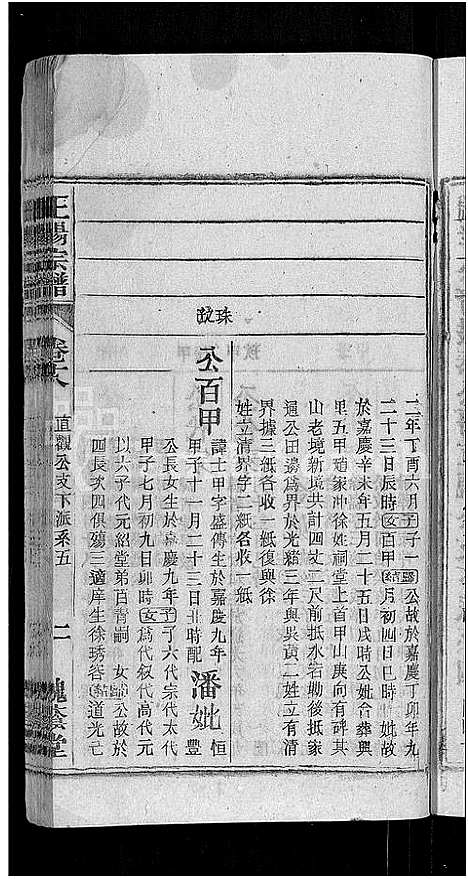 二年丁酉六月子子一公故於嘉慶丁卯年九
二十三日辰時女百甲結月初四日巳時妣故
於嘉慶辛未年五月二十五日戌時公妣合葬興
里五甲趙家冲徐姓祠堂上首甲山庚向有碑其
山老境新境共計四丈二尺前抵水宕勘後抵家
過公田邊為界於光緒三年與吳黃二姓立有清
界據三紙各收一紙復興徐
姓立清界字二紙各收一紙
公百甲
諱士甲字盛傳生於嘉慶九年
甲子十一月二十三日亥時配潘妣恒豐
公長女生於嘉慶九年子子六代宗代太代
甲子七月初九日卯時女為代叙代高代元
以六子代元紹堂弟肖青嗣女公故於
四長次四俱殤三適庠生徐琇容結道光己
珠故
王楊宗譜
卷十八
直觀公支下派系五
二
槐蔭堂